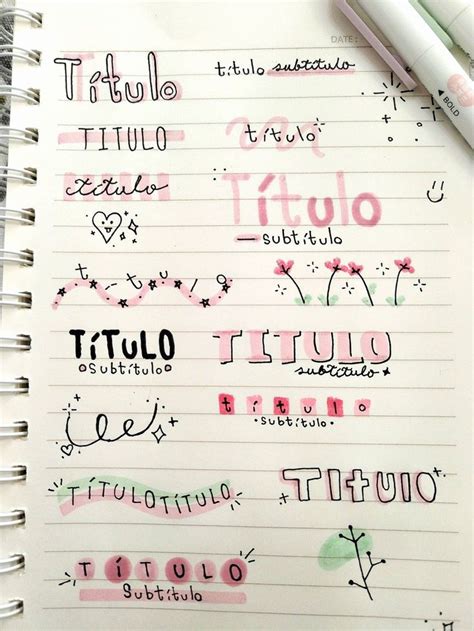 DATE:
Título
título subtítulo
BOLD
TITULO
título
título
Título
— subtítulo
t-í-t-u-l-o
TíTULO
Subtítulo
TITULO
subtítulo
título
·Subtítulo·
TÍTULOTÍTULO
TItulo
TÍTULO
Subtítulo